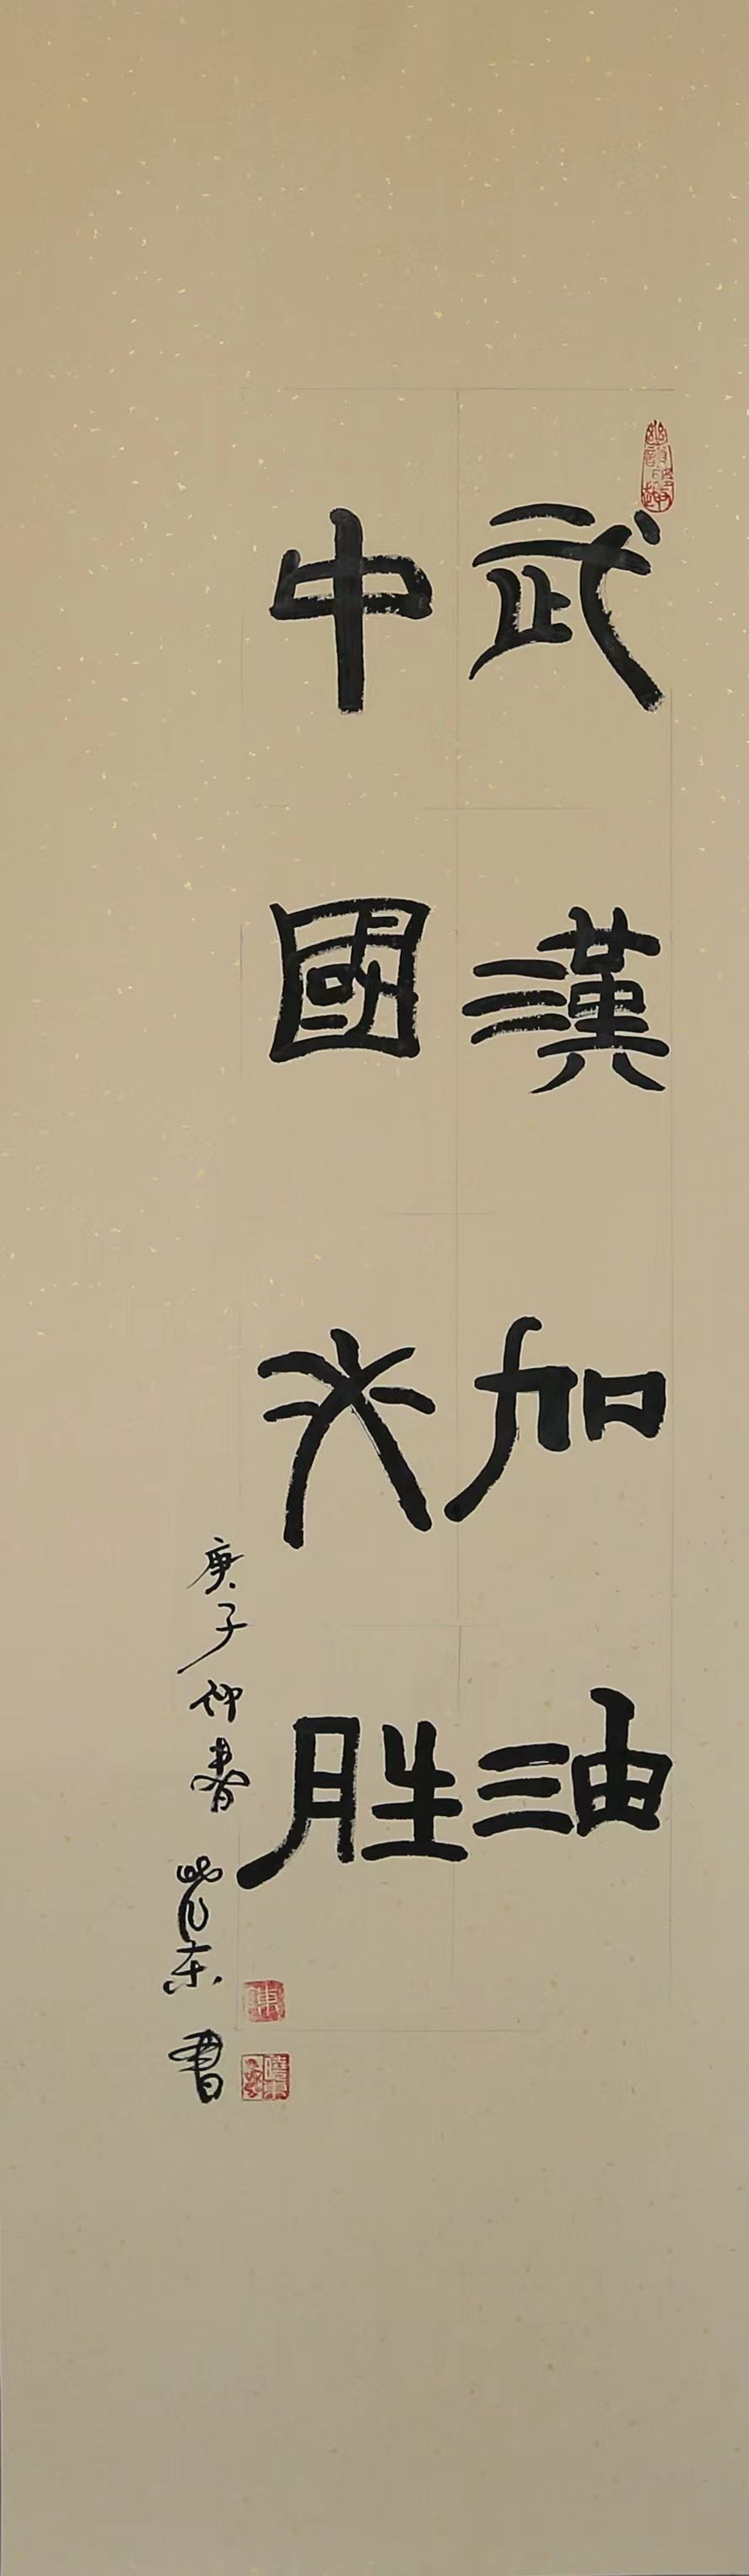 武漢加油
中國必胜
庚子仲春 東書